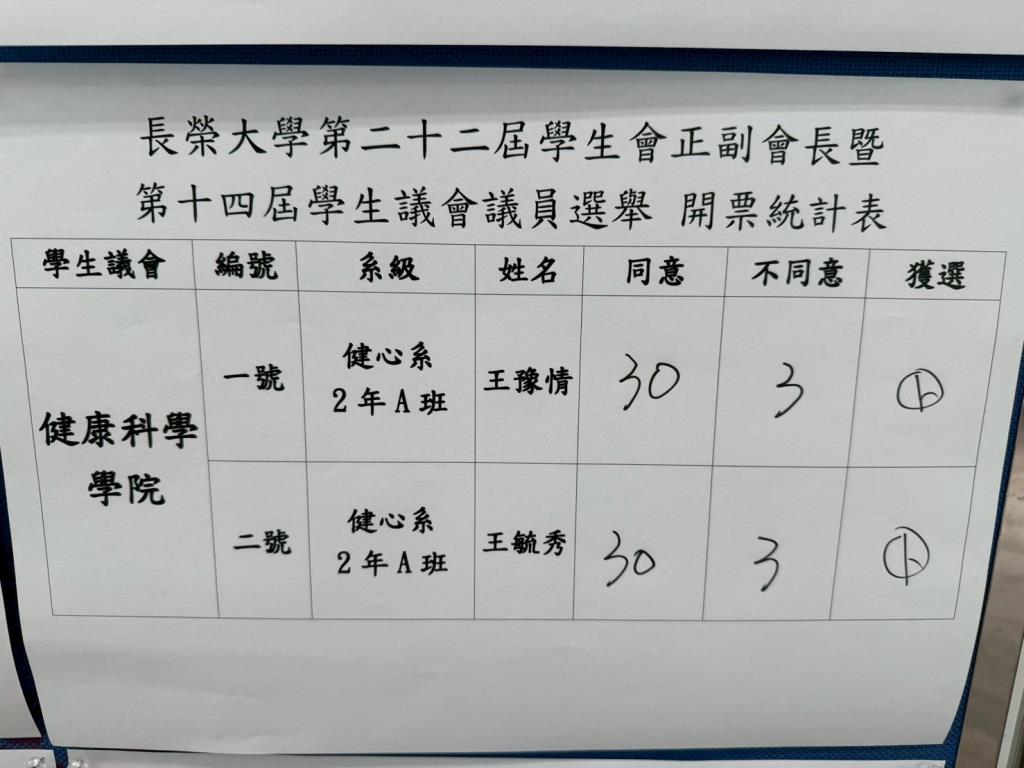 長榮大學第二十二屆學生會正副會長暨
第十四屆學生議會議員選舉 開票統計表
學生議會 編號 系級 姓名 同意 不同意 獲選
健康科學
學院
一號 健心系
2年A班 王豫情 30 3
二號 健心系
2年A班 王毓秀 30 3